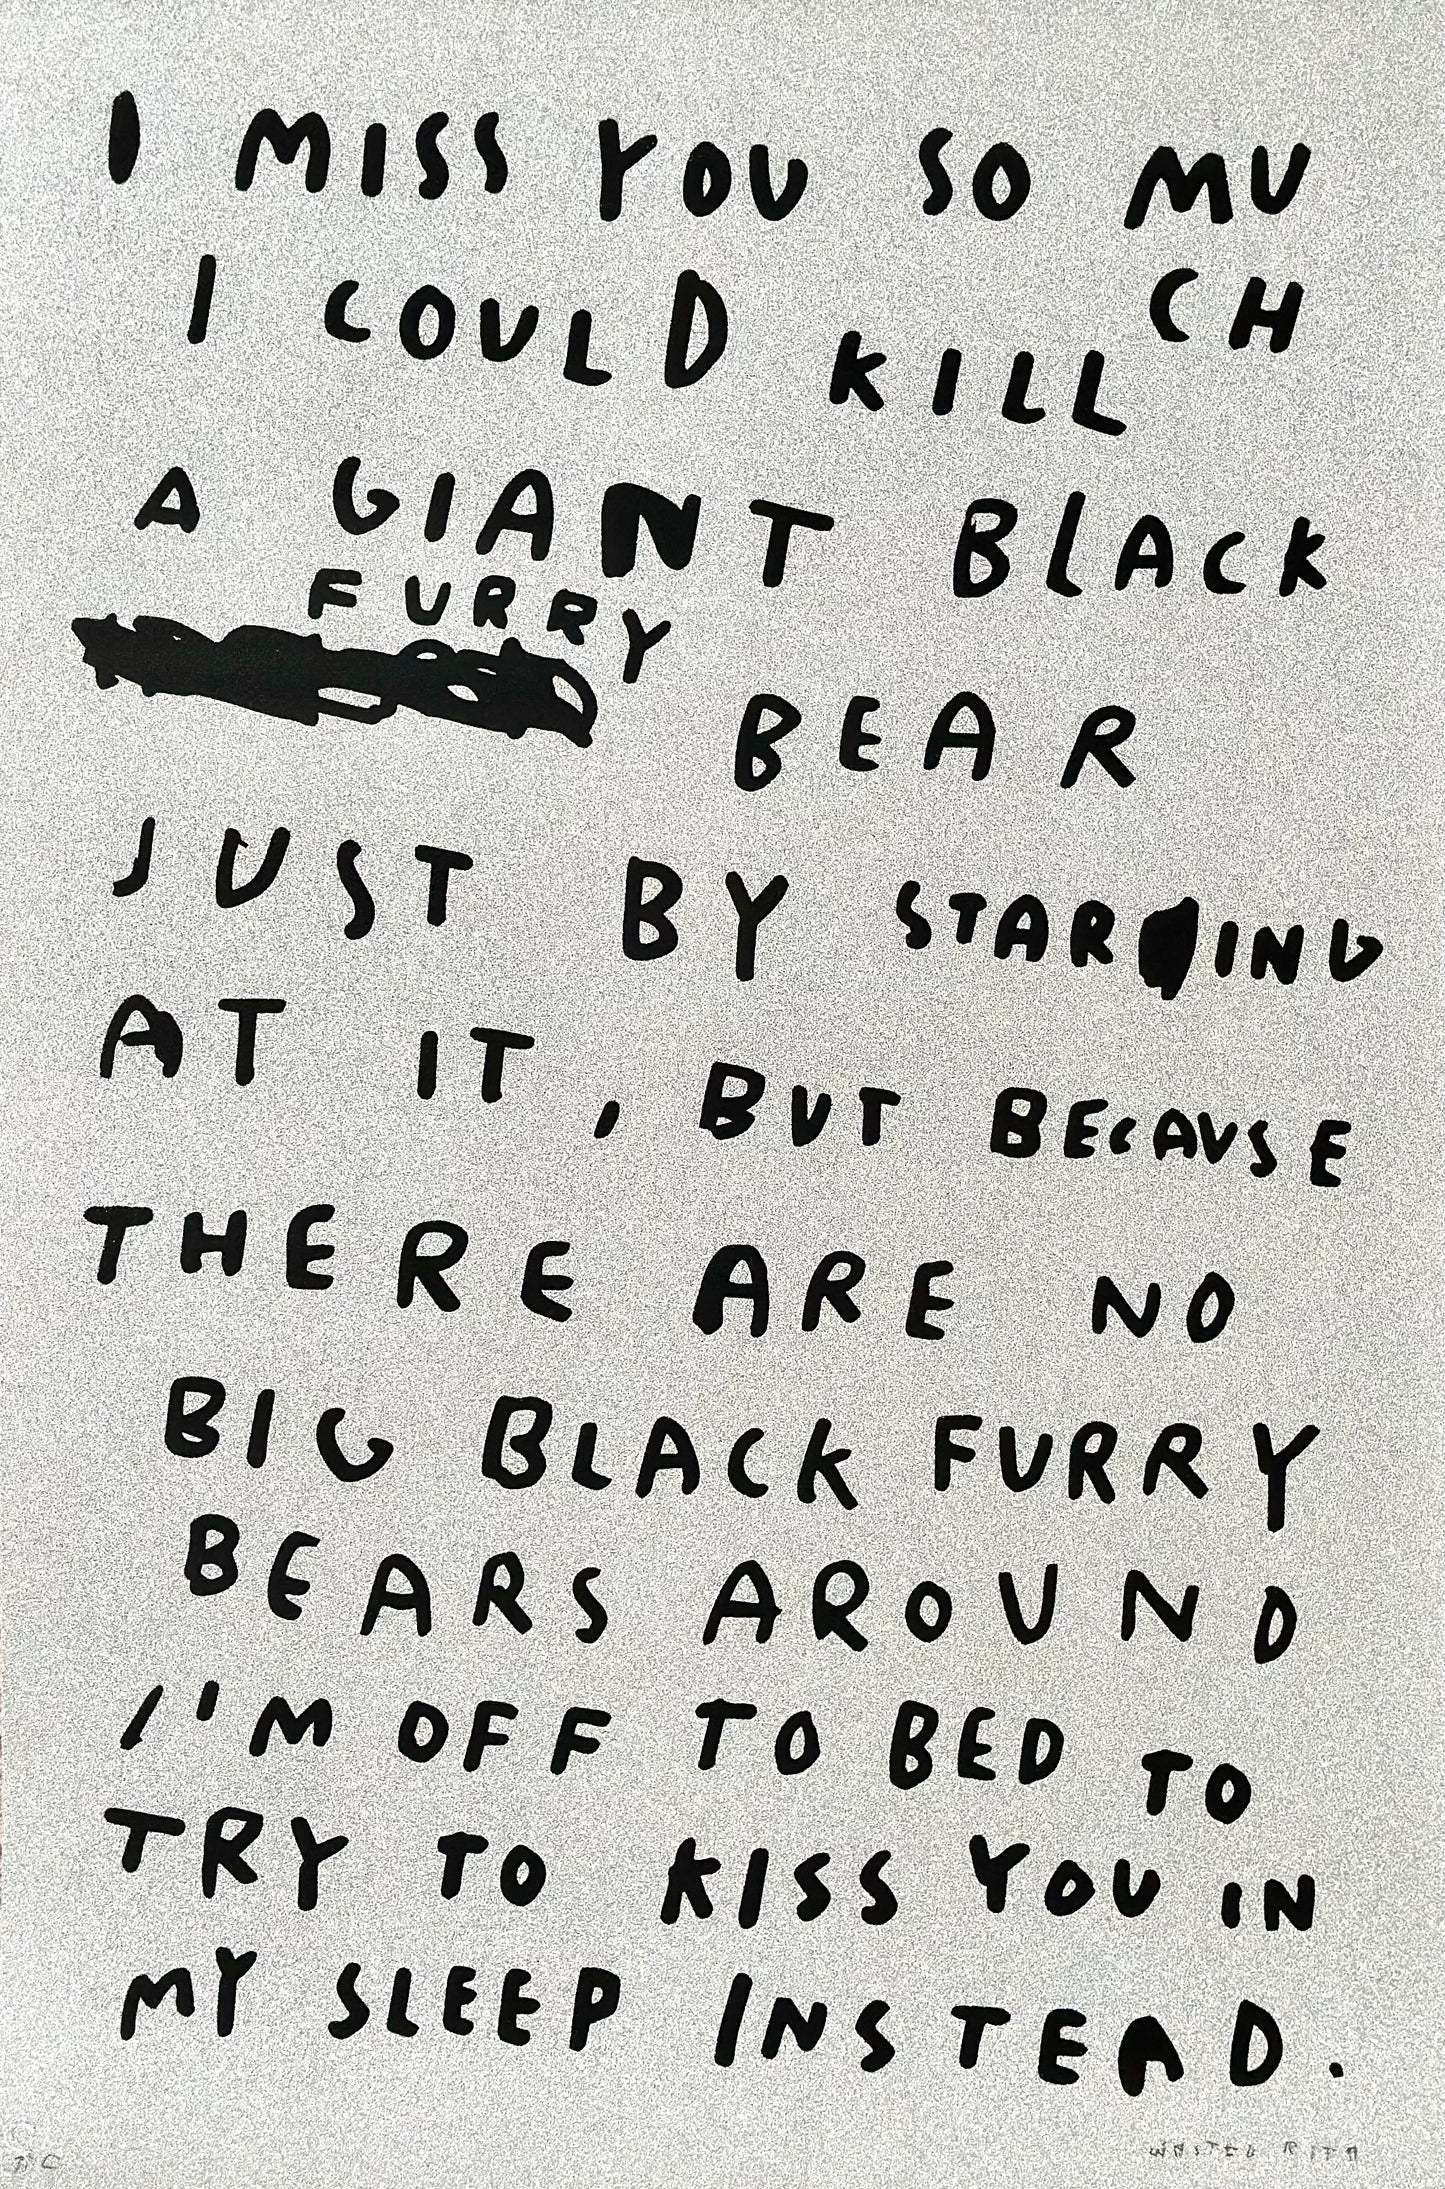 I MISS YOU SO MU
CH
I COULD KILL
A GIANT BLACK
FURRY
BEAR
JUST BY STARING
AT IT, BUT BECAUSE
THERE ARE NO
BIG BLACK FURRY
BEARS AROUND
I'M OFF TO BED TO
TRY TO KISS YOU IN
MY SLEEP INSTEAD.
WASTED RITA